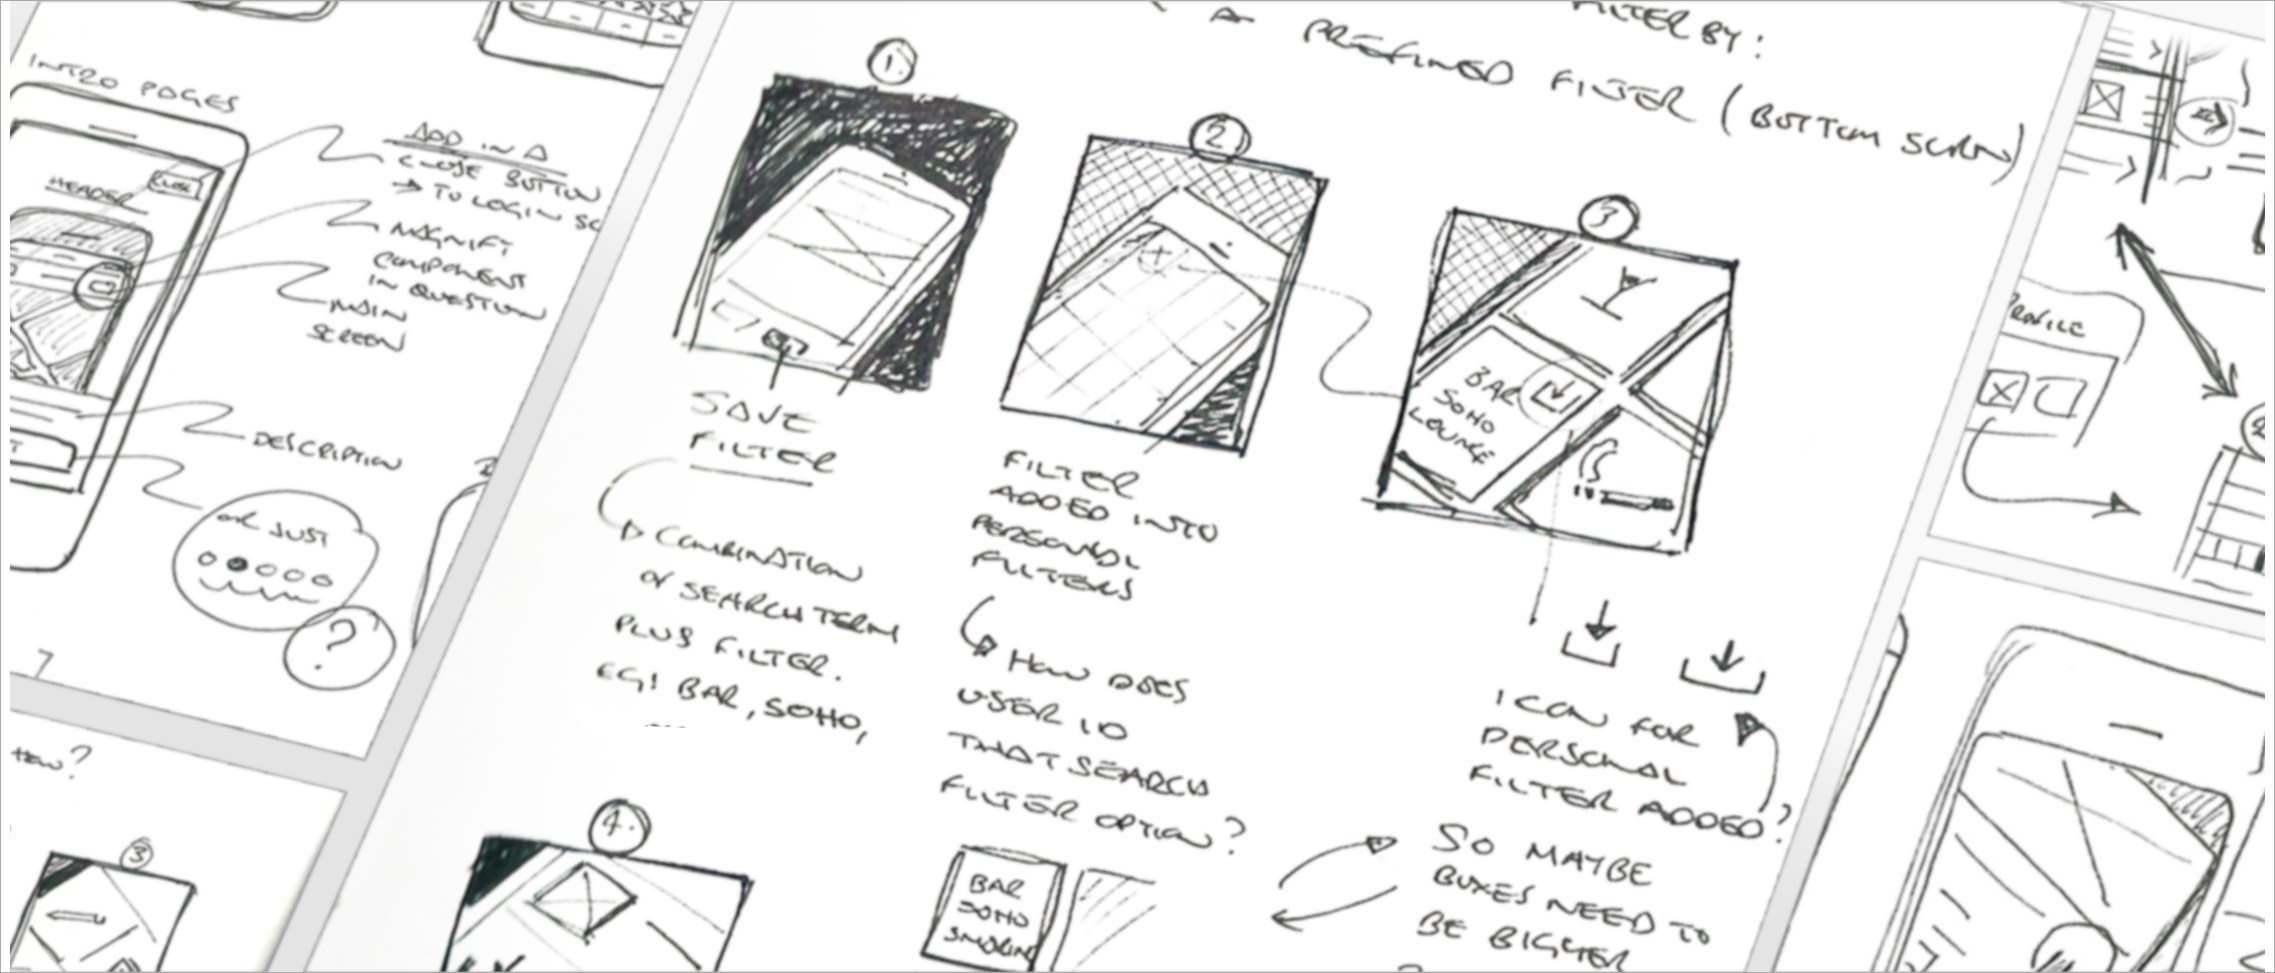 INTRO PAGES
HEADER
CLOSE
ADD IN A
CLOSE BUTTON
→ TO LOGIN SC
MAGNIFY
COMPONENT
IN QUESTION
MAIN
SCREEN
DESCRIPTION
OR JUST
?
FILTER BY:
A PREFINED FILTER (BOTTOM SCREEN)
1.
SAVE
FILTER
COMBINATION
OF SEARCH TERM
PLUS FILTER.
EG: BAR, SOHO,
2
FILTER
ADDED INTO
PERSONAL
FILTERS
HOW DOES
USER ID
THAT SEARCH
FILTER OPTION?
BAR
SOHO
SMOKING
3
BAR
SOHO
LOUNGE
ICON FOR
PERSONAL
FILTER ADDED?
SO MAYBE
BOXES NEED TO
BE BIGGER
4.
HOW?
3
PROFILE